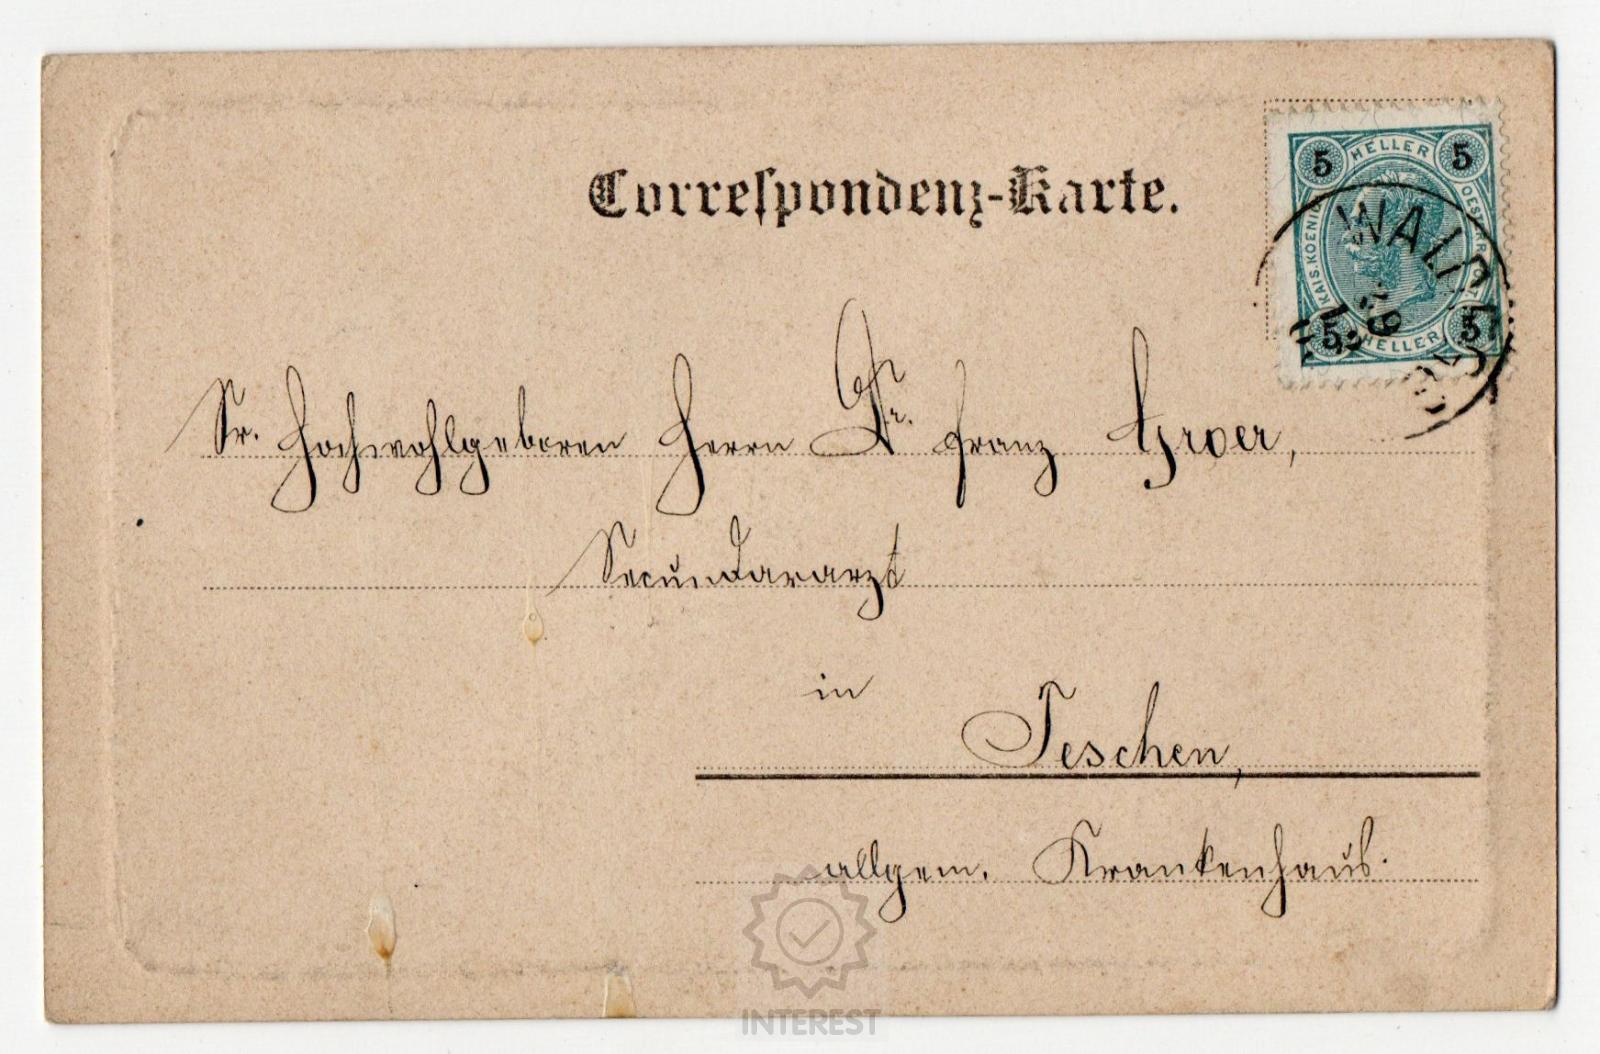 Correspondenz-Karte.
5 HELLER 5
KAIS. KOENIGL.
OESTERR. POST
5 HELLER 5
Sr. Hochwohlgeboren Herrn Dr. Franz Groër,
Secundararzt
in
Teschen,
allgem. Krankenhaus.
INTEREST